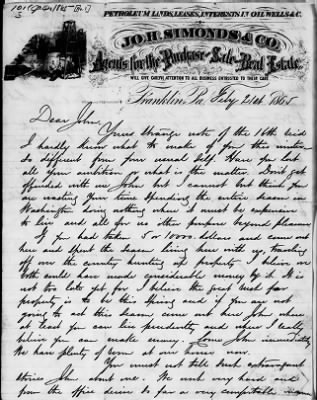 PETROLEUM LANDS, LEASES, INTERESTS IN OIL WELLS &C.
JO. H. SIMONDS & CO.
Agents for the Purchase & Sale of Real Estate.
WILL GIVE CAREFUL ATTENTION TO ALL BUSINESS ENTRUSTED TO THEIR CARE
Franklin, Pa. Feby 21st 1865
Dear John
Yours strange note of the 16th recd
I hardly know what to make of you this winter
So different from your usual self. Have you lost
all your ambition or what is the matter. Don't get
offended with me John but I cannot but think you
are wasting your time spending the entire season in
Washington doing nothing where it must be expensive
to live and all for no other purpose beyond pleasure
If you had taken 5 or 1000 dollars and come out
here and spent the season living here with us, travelling
off over the country hunting up property I believe we
both could have made considerable money by it. It is
not too late yet for I believe the great rush for
property is to be this Spring and if you are not
going to act this season come out here John where
at least you can live prudently and where I really
believe you can make money. Come John immediately
We have plenty of room at our house now.
You must not tell such extravagant
stories John about me. We work very hard and
from the office desire so far a very comfortable